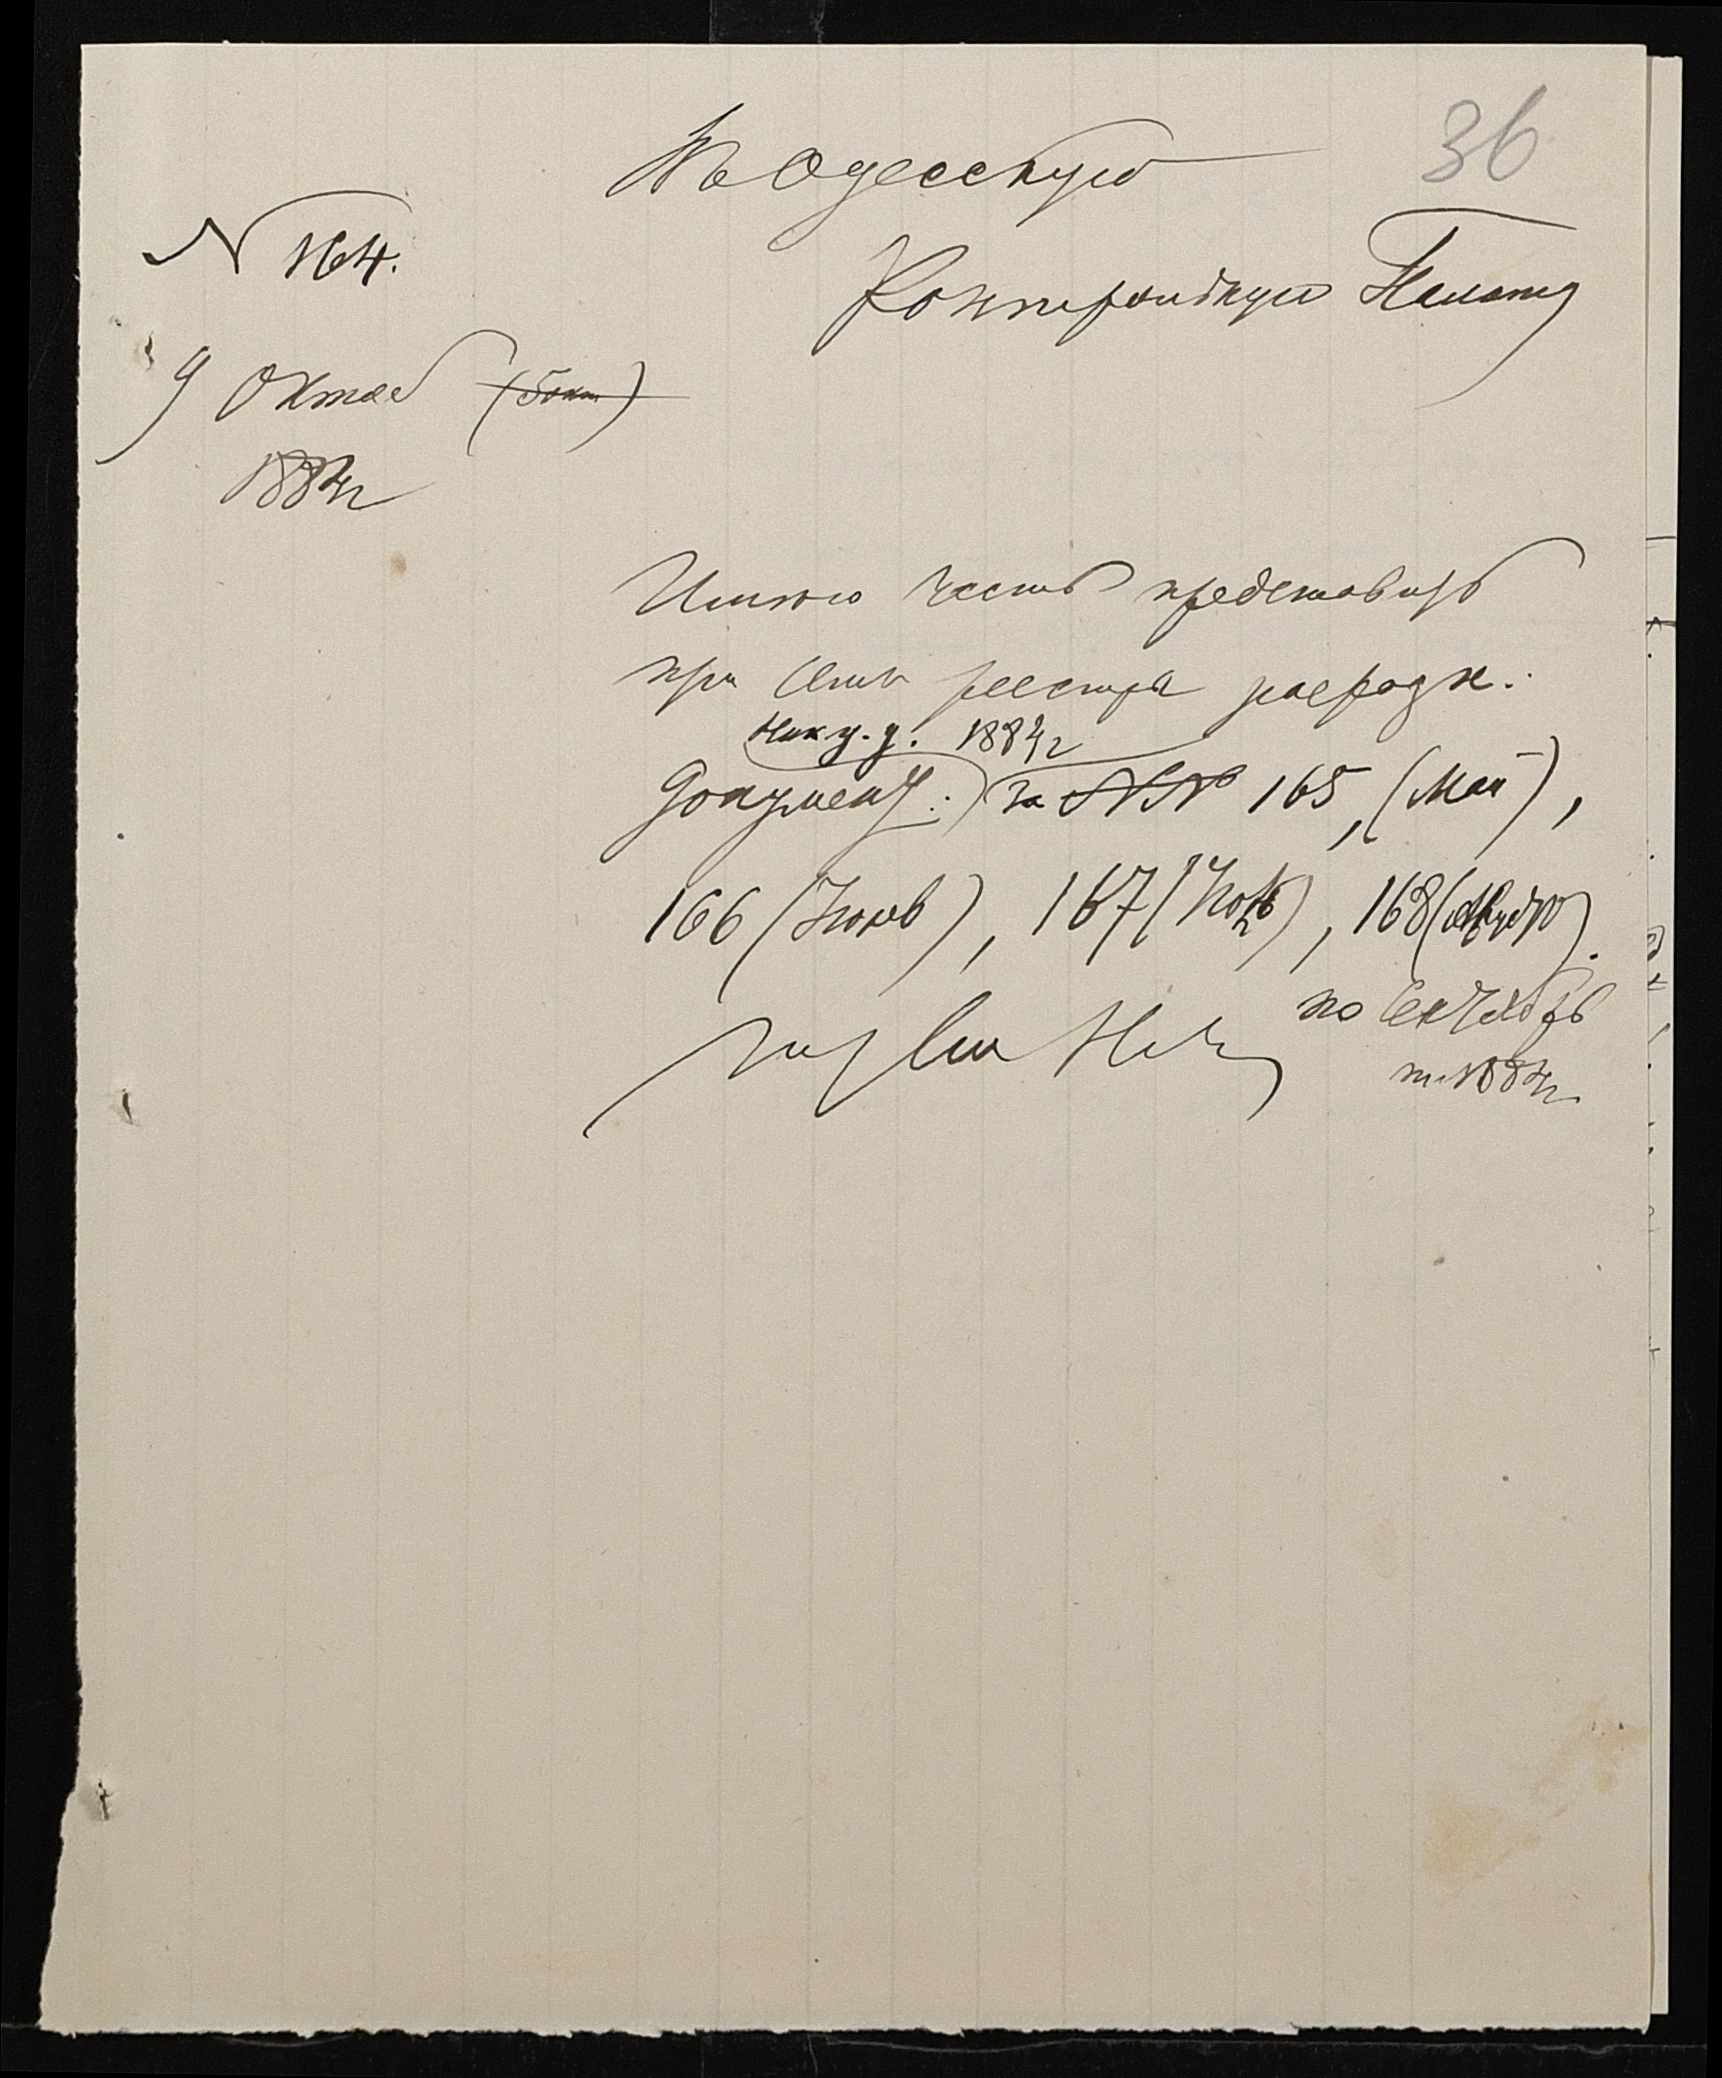 36
Въ Одесскую
№ 164.
Контрольную Палату
9 Октяб (5 окт)
1884 г
Имѣю честь представить
при семъ реестры расходн.
1884 г
документ. за №№ 165, (Май),
166 (Іюнь), 167 (Іюль), 168 (Август).
по Сентябрь
1884 г